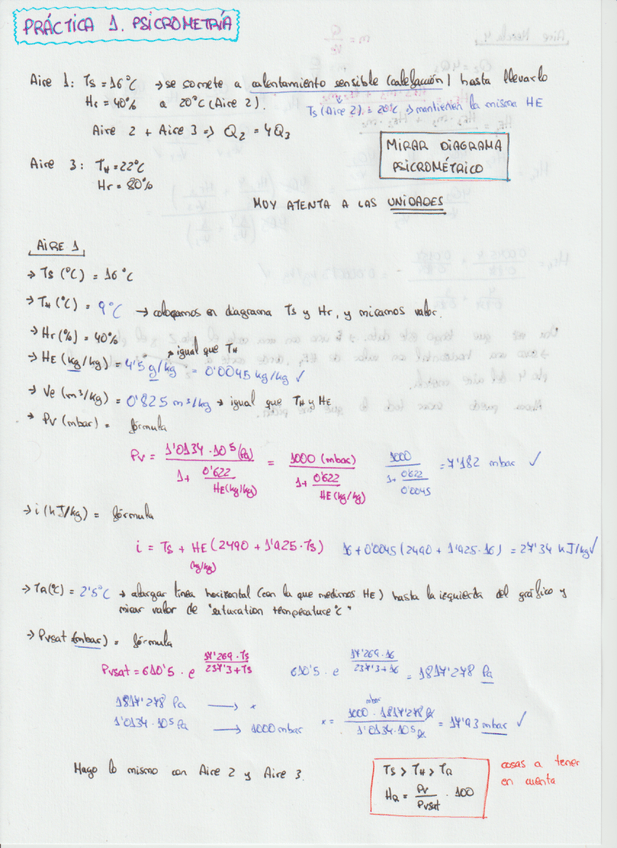 PRÁCTICA 1. PSICROMETRÍA
Aire 1: Ts = 16°C → se somete a calentamiento sensible (calefacción) hasta llevarlo
Hr = 40% a 20°C (Aire 2).
Ts (Aire 2) = 20°C → mantienen la misma HE
Aire 2 + Aire 3 => Q2 = 4Q3
MIRAR DIAGRAMA
PSICROMÉTRICO
Aire 3: TH = 22°C
Hr = 80%
MUY ATENTA A LAS UNIDADES
AIRE 1
→ Ts (°C) = 16°C
→ TH (°C) = 9°C → colocamos en diagrama Ts y Hr, y miramos valor.
→ Hr (%) = 40%
→ igual que TH
→ HE (kg/kg) = 4'5 g/kg = 0'0045 kg/kg ✓
→ Ve (m³/kg) = 0'825 m³/kg → igual que TH y HE
→ Pv (mbar) = fórmula
Pv = 1'0134·10⁵ (Pa) / (1 + 0'622 / HE (kg/kg)) = 1000 (mbar) / (1 + 0'622 / HE (kg/kg)) 1000 / (1 + 0'622 / 0'0045) = 7'182 mbar ✓
→ i (kJ/kg) = fórmula
i = Ts + HE (2490 + 1'925·Ts) 16 + 0'0045 (2490 + 1'925·16) = 27'34 kJ/kg ✓
(kg/kg)
→ TR (°C) = 2'5°C → alargar línea horizontal (con la que medimos HE) hasta la izquierda del gráfico y
mirar valor de "saturation temperature °C"
→ Pvsat (mbar) = fórmula
Pvsat = 610'5 · e^(17'269·Ts / 237'3+Ts) 610'5 · e^(17'269·16 / 237'3+16) = 1817'278 Pa
1817'278 Pa → x
1'0134·10⁵ Pa → 1000 mbar x = 1000 mbar · 1817'278 Pa / 1'0134·10⁵ Pa = 17'93 mbar ✓
Hago lo mismo con Aire 2 y Aire 3.
Ts > TH > TR
HR = Pv / Pvsat · 100
cosas a tener
en cuenta